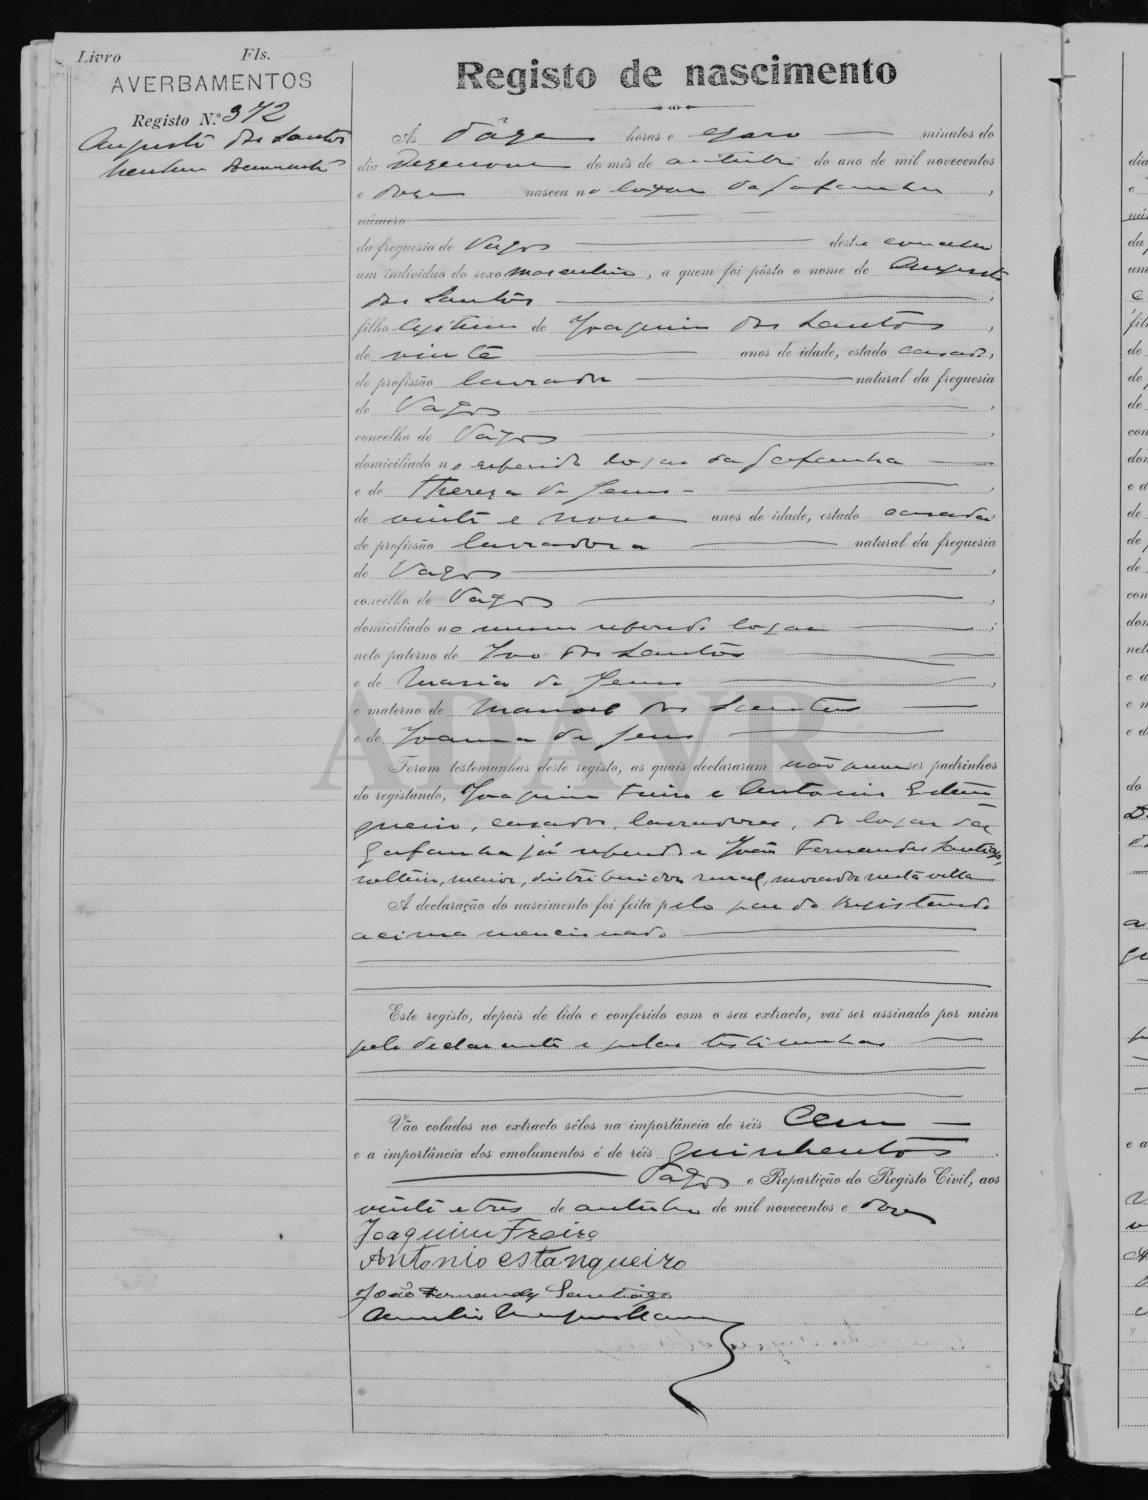 Livro Fls.
AVERBAMENTOS
Registo N.º 372
Augusto dos Santos
Registo de nascimento
Ás doze horas e zero minutos do
dia dezenove do mês de outubro do ano de mil novecentos
e doze nasceu no logar da Gafanha,
número
da freguesia de Vagos deste concelho
um indivíduo do sexo masculino, a quem foi pôsto o nome de Augusto
dos Santos;
filho legitimo de Joaquim dos Santos,
de vinte anos de idade, estado casado,
de profissão lavrador natural da freguesia
de Vagos,
concelho de Vagos,
domiciliado no referido logar da Gafanha
e de Thereza de Jesus,
de vinte e nove anos de idade, estado casada
de profissão lavradora natural da freguesia
de Vagos,
concelho de Vagos,
domiciliado no mesmo referido logar;
neto paterno de Ivo dos Santos
e de Maria de Jesus,
e materno de Manoel dos Santos
e de Joanna de Jesus
Foram testemunhas deste registo, as quais declararam não serem padrinhos
do registando, Joaquim Freire e Antonio Estan
queiro, casados, lavradores, do logar da
Gafanha já referido e João Fernandes Santiago,
solteiro, maior, distribuidor rural, morador nesta villa
A declaração do nascimento foi feita pelo pae do registando
acima mencionado
Este registo, depois de lido e conferido com o seu extracto, vai ser assinado por mim
pelo declarante e pelas testimunhas
Vão colados no extracto sêlos na importância de réis Cem
e a importância dos emolumentos é de réis quinhentos.
Vagos e Repartição do Registo Civil, aos
vinte e tres de outubro de mil novecentos e doze
Joaquim Freire
Antonio estanqueiro
João Fernandes Santiago
ADAVR